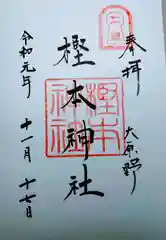 奉拝
大原野
樫本神社
樫本神社
令和元年
十一月
十七日